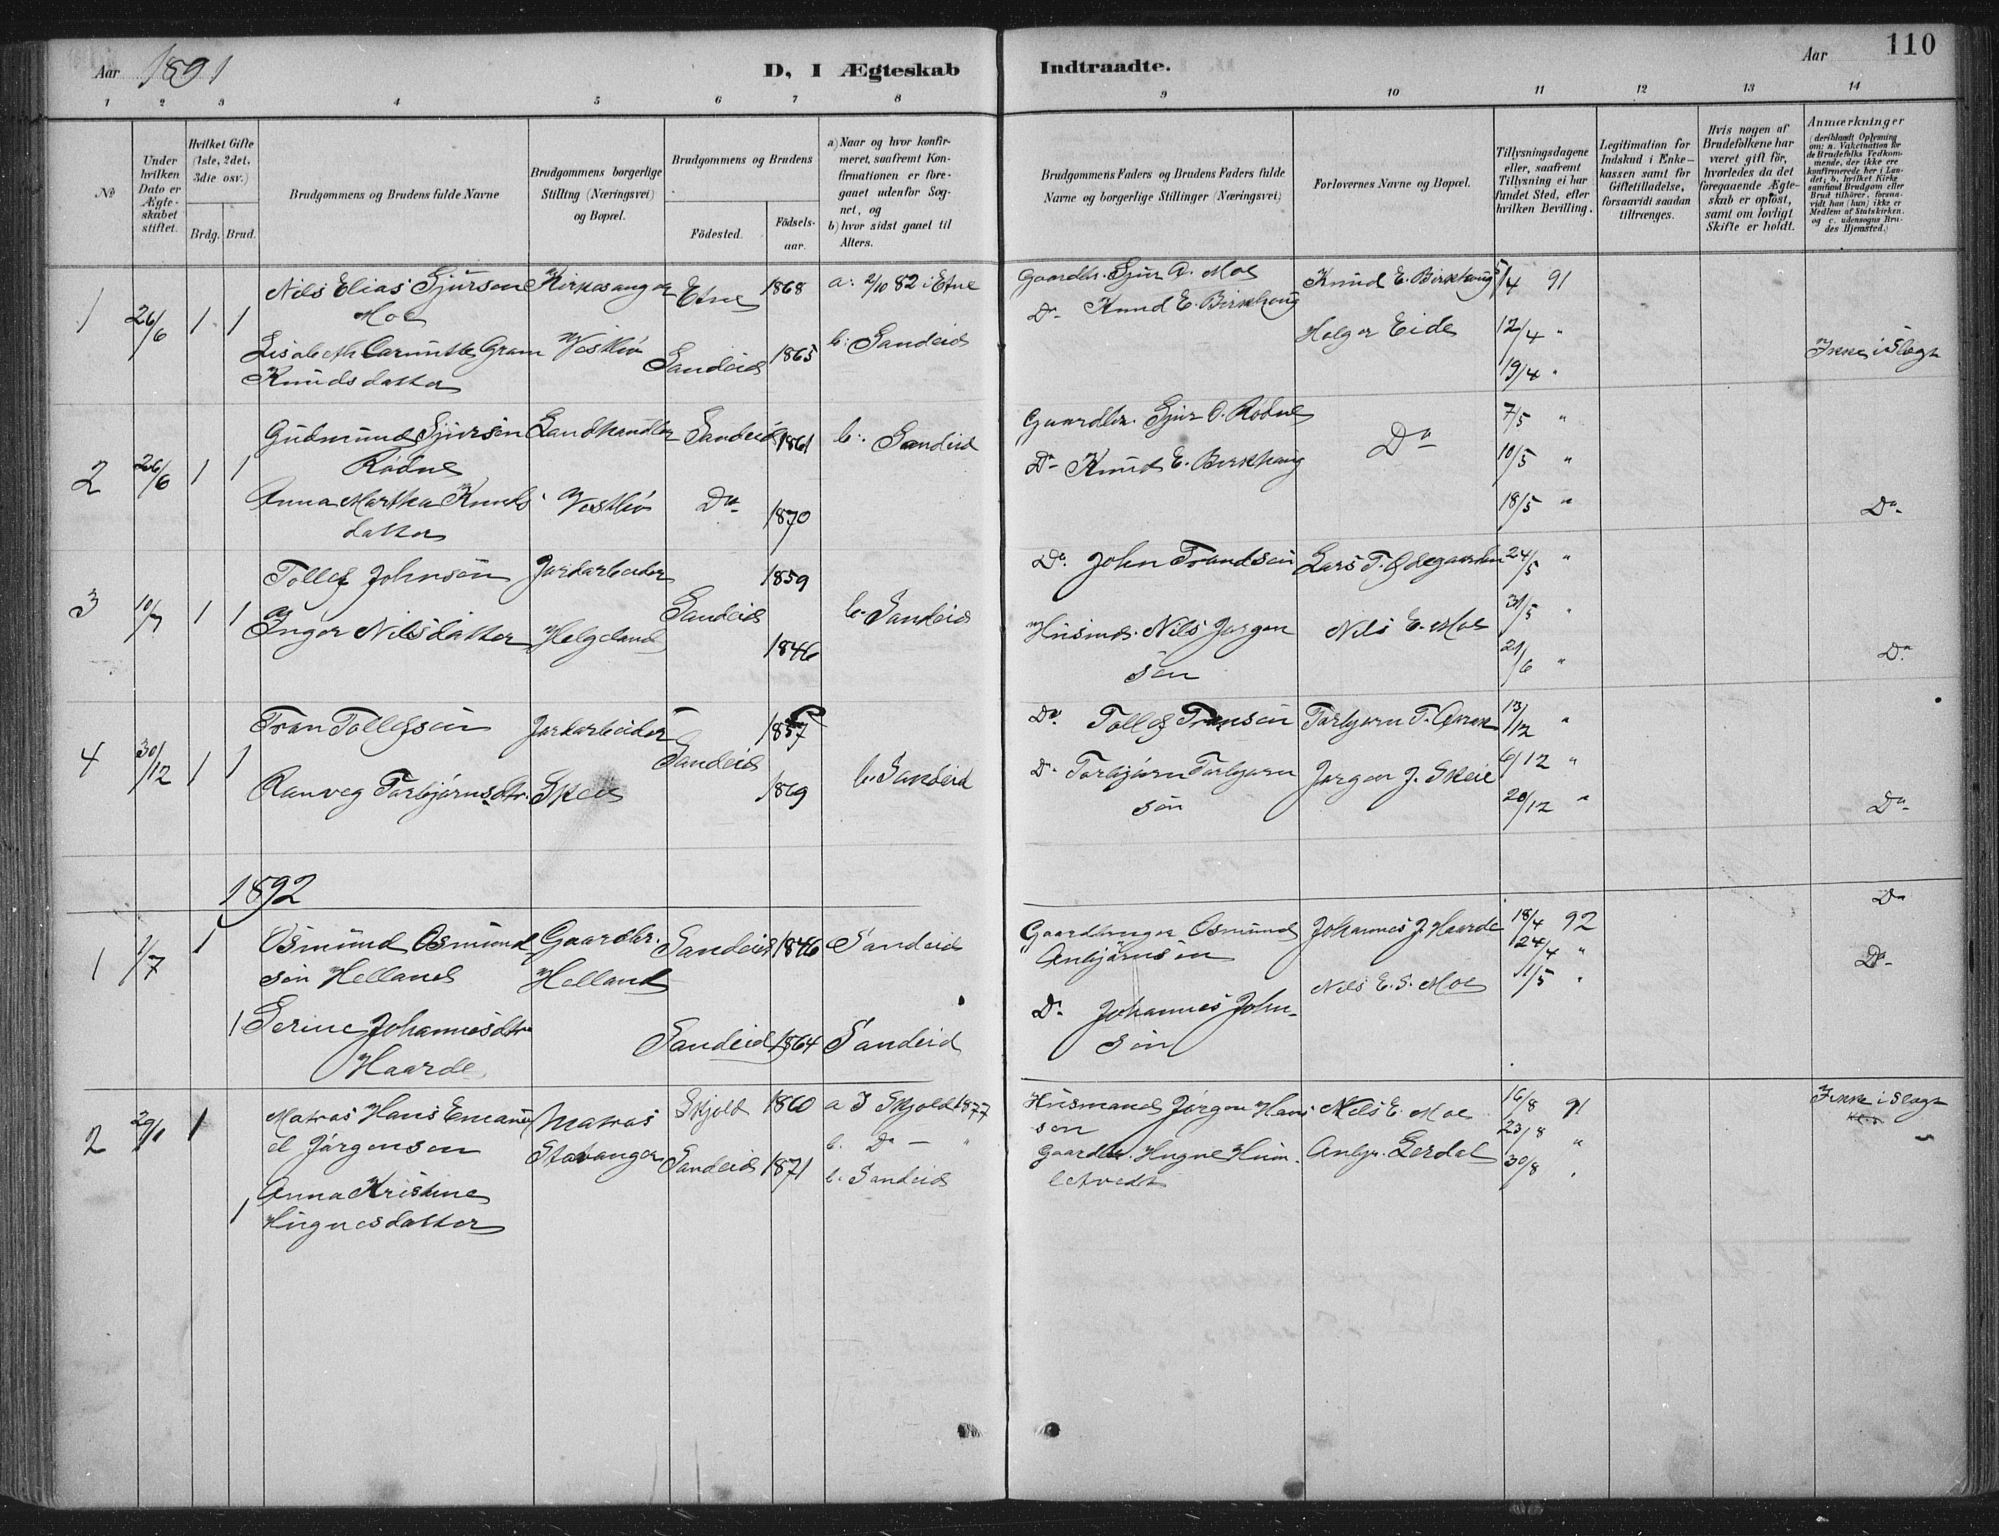 Aar 1891
D, I Ægteskab
Indtraadte.
Aar
110
1 2 3 4 5 6 7 8 9 10 11 12 13 14
No
Under hvilken Dato er Ægteskabet stiftet.
Hvilket Gifte (1ste, 2det, 3die osv.)
Brdg. Brud.
Brudgommens og Brudens fulde Navne
Brudgommens borgerlige Stilling (Næringsvei) og Bopæl.
Brudgommens og Brudens
Födested.
Födselsaar.
a) Naar og hvor konfirmeret, saafremt Konfirmationen er foregaaet udenfor Sognet, og
b) hvor sidst gaaet til Alters.
Brudgommens Faders og Brudens Faders fulde Navne og borgerlige Stillinger (Næringsvei)
Forlovernes Navne og Bopæl.
Tillysningsdagene eller, saafremt Tillysning ei har fundet Sted, efter hvilken Bevilling.
Legitimation for Indskud i Enkekassen samt for Giftetilladelse, forsaavidt saadan tiltrænges.
Hvis nogen af Brudefolkene har været gift för, hvorledes da det foregaaende Ægteskab er oplöst, samt om lovligt Skifte er holdt.
Anmærkninger
(deriblandt Oplysning om: a. Vakcination for de Brudefolks Vedkommende, der ikke ere konfirmerede her i Landet; b. hvilket Kirkesamfund Brudgom eller Brud tilhörer, forsaavidt han (hun) ikke er Medlem af Statskirken, og c. udensogns Brudes Hjemsted.)
1 26/6 1 1
Nils Elias Sjursen Moe
Kirkesanger
Etne 1868
a: 2/10 82 i Etne
Gaardbr. Sjur A. Moe
Knud E. Birkhaug
5/4 91
Lisabeth Gram Knudsdatter
Vestbø
Sandeid 1865
b: Sandeid
Do Knud E. Birkhaug
Holger Eide
12/4 "
19/4 "
Ikke i Slægt
2 26/6 1 1
Gudmund Sjursen Rødne
Landhandler
Sandeid 1861
b: Sandeid
Gaardbr. Sjur O. Rødne
Do
7/5 "
Anna Martha Knudsdatter
Vestbø
Do 1870
Do Knud E. Birkhaug
10/5 "
18/5 "
Do
3 10/7 1 1
Tollef Johnsön
Jordarbeider
Sandeid 1859
b. Sandeid
Do John Trandsön
Lars T. Ødegaarden
24/5 "
Inger Nilsdatter
Helgeland
1846
Husmd. Nils Jørgensön
Nils E. Moe
31/5 "
21/6 "
Do
4 30/12 1 1
Tran Tollefsön
Jordarbeider
Sandeid 1857
b. Sandeid
Do Tollef Transön
Torbjørn T.
13/12 "
Ranveg Torbjørnsdtr.
Skeie
1869
Do Torbjørn Torbjørnsön
Jørgen J. Skeie
6/12 "
20/12 "
Do
1892
Do
1 1/7 1
Osmund Osmundsön Helland
Gaardbr. Helland
Sandeid 1846
Sandeid
Gaardbruger Osmund Anbjørnsön
Johannes J. Haarde
18/4 92
24/4 "
Nils E. S. Moe
1/5 "
Do
1 Serine Johannesdtr Haarde
Sandeid 1864
Sandeid
Do Johannes Johnsön
2 29/1 1
Matros Hans Emanuel Jørgensen
Matros Stavanger
Skjold 1860
a I Skjold 1877
b. Do - "
Husmand Jørgen Hansson
Nils E. Moe
16/8 91
23/8 "
Ikke i Slægt
1 Anna Kristine Hugnesdatter
Sandeid 1871
b. Sandeid
Gaardbr. Hugne
Anbjr. Lerdal
30/8 "